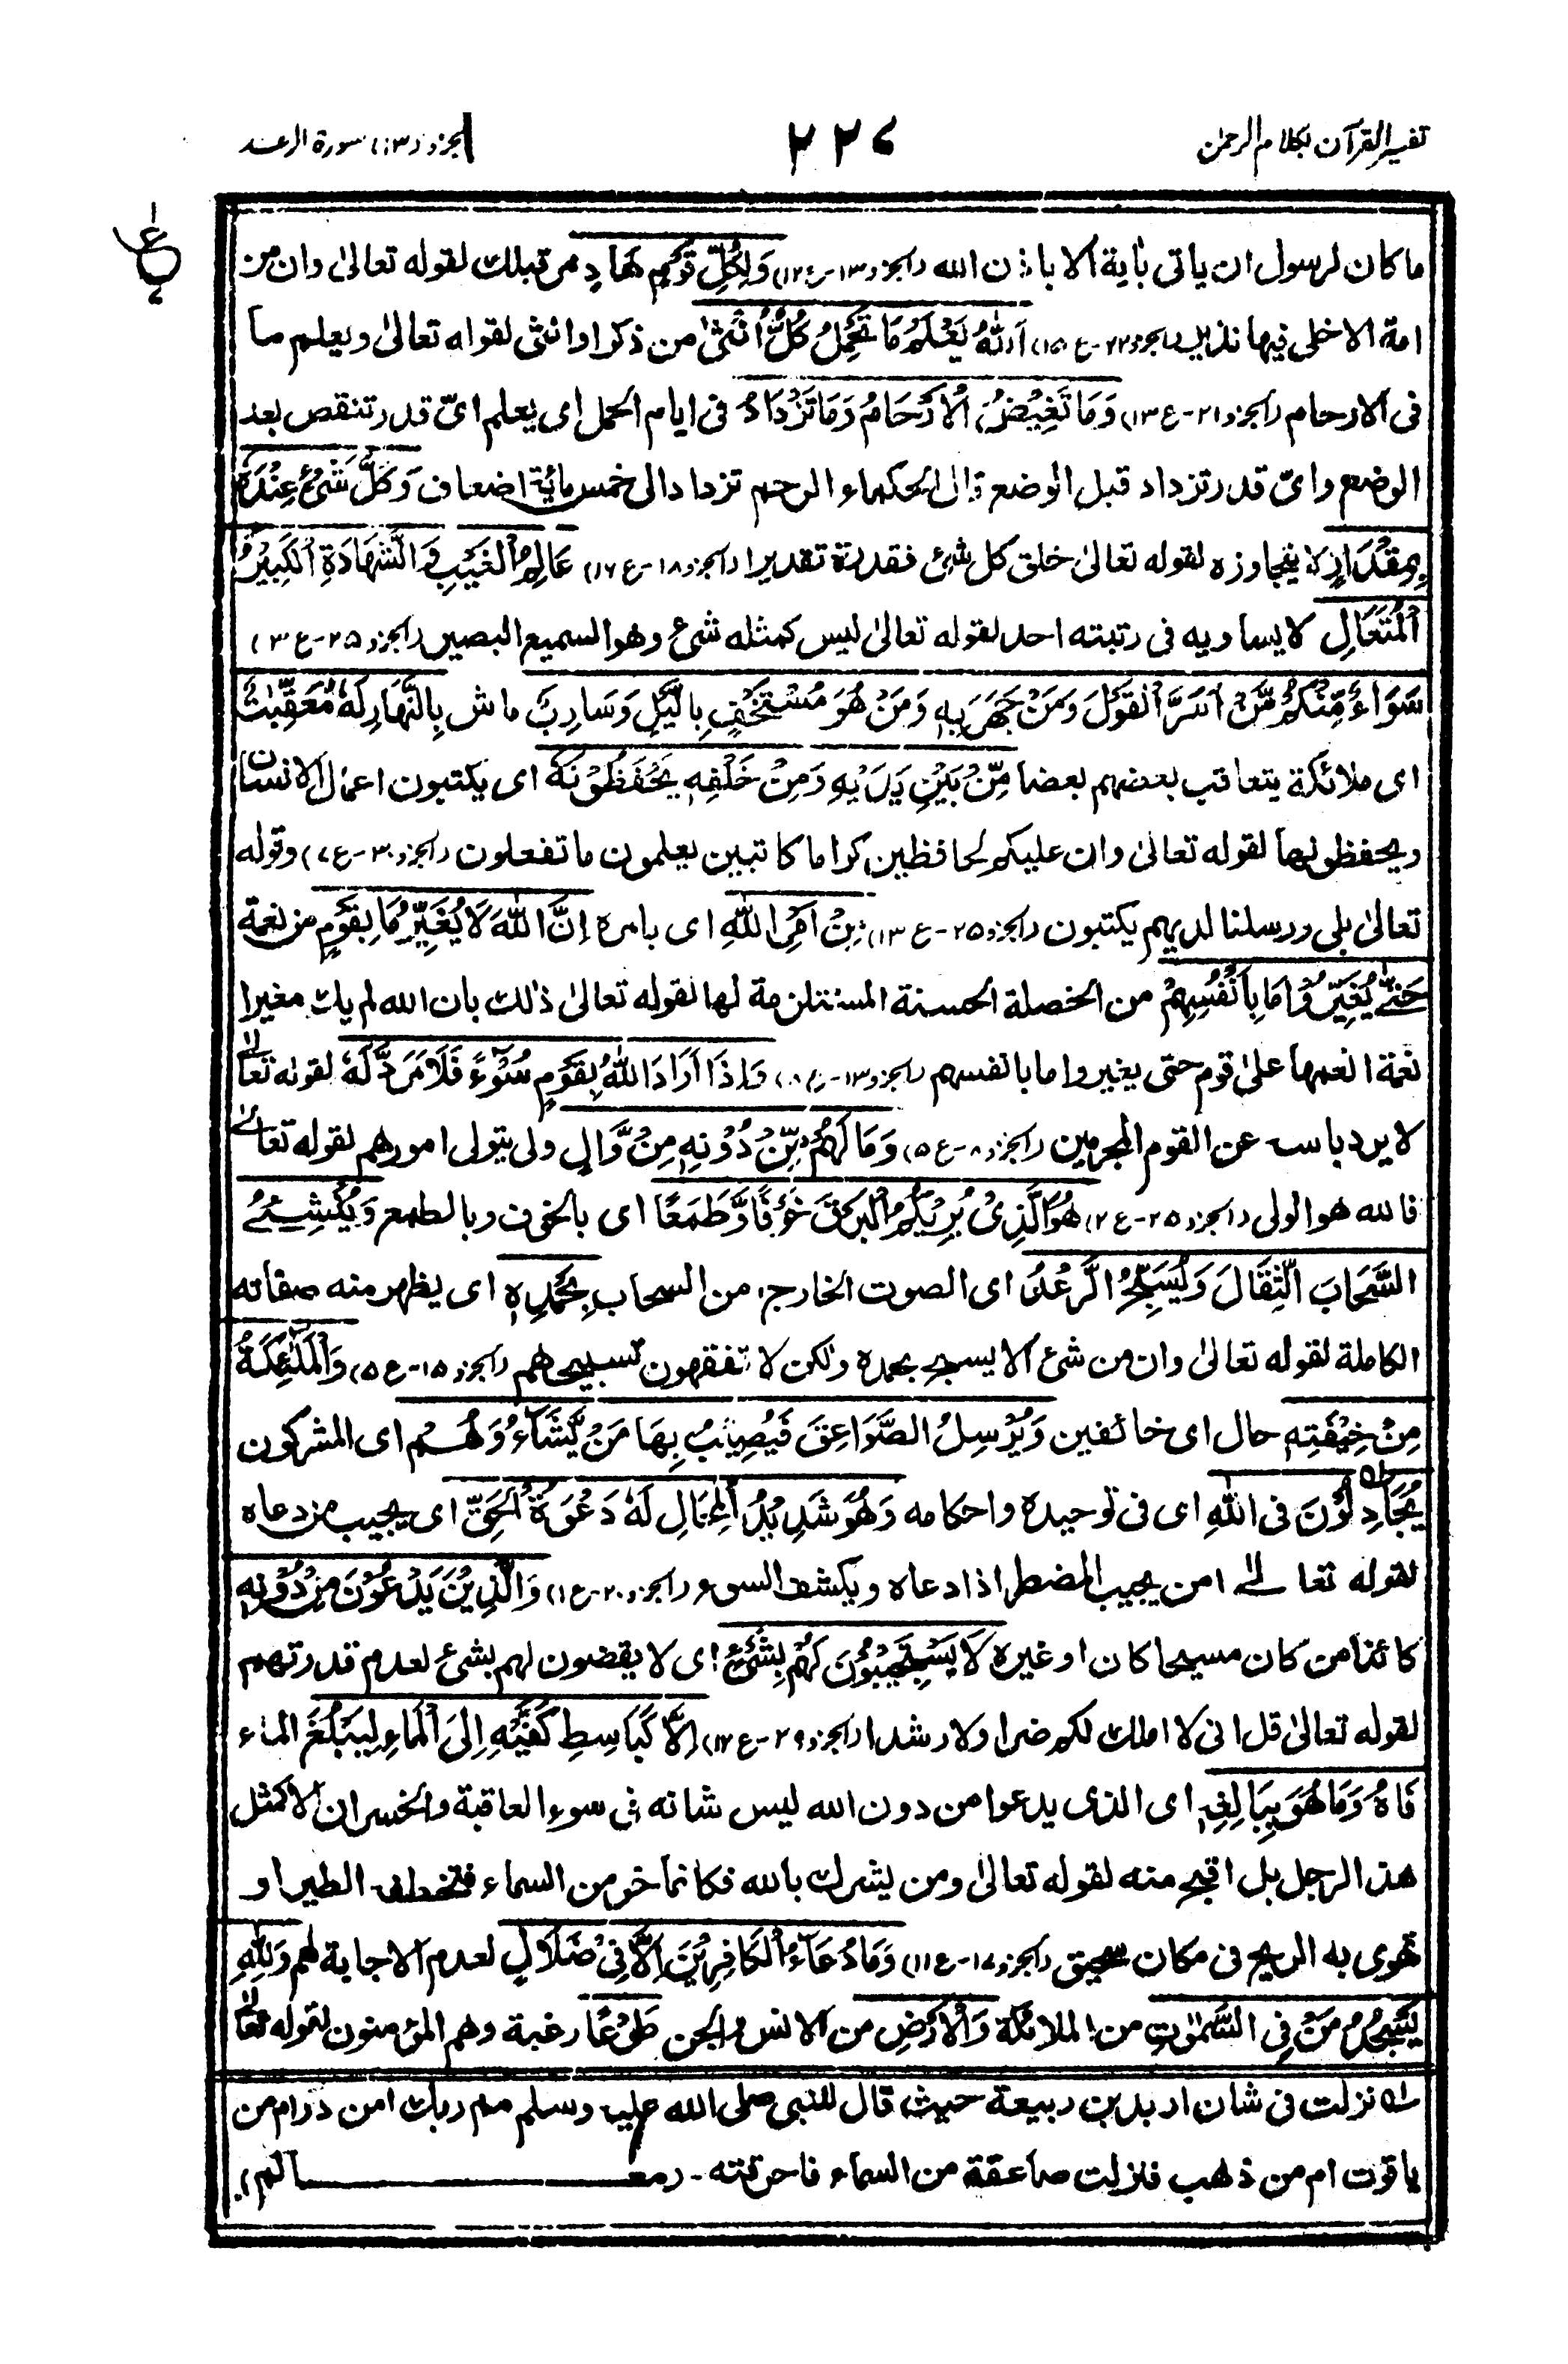 تفسير القرآن بكلام الرحمن
٢٢٧
الجزء (١٣) سورة الرعد
ع
ما كان لرسول ان ياتى بأية الا باذن الله (الجزء ١٣-ع١٢) وَلِكُلِّ قَوْمٍ هَادٍ من قبلك لقوله تعالىٰ وان من
امة الا خلى فيها نذير (الجزء ٢٢-ع ١٥) اَللّٰهُ يَعْلَمُ مَا تَحْمِلُ كُلُّ اُنْثٰى من ذكر او انثى لقوله تعالىٰ ويعلم ما
فى الارحام (الجزء ٢١-ع ١٣) وَمَا تَغِيْضُ الْاَرْحَامُ وَمَا تَزْدَادُ فى ايام الحمل اى يعلم اىّ قدر تنقص بعد
الوضع واىّ قدر تزداد قبل الوضع قال الحكماء الرحم تزداد الى خمس مائة اضعاف وَكُلُّ شَىْءٍ عِنْدَهٗ
بِمِقْدَارٍ لا يتجاوزه لقوله تعالىٰ خلق كل شئ فقدره تقديرا (الجزء ١٨-ع ١٦) عَالِمُ الْغَيْبِ وَالشَّهَادَةِ الْكَبِيْرُ
الْمُتَعَالِ لا يساويه فى رتبته احد لقوله تعالىٰ ليس كمثله شىء وهو السميع البصير (الجزء ٢٥-ع ٣)
سَوَاءٌ مِّنْكُمْ مَّنْ اَسَرَّ الْقَوْلَ وَمَنْ جَهَرَ بِهٖ وَمَنْ هُوَ مُسْتَخْفٍ بِاللَّيْلِ وَسَارِبٌ ماش بِالنَّهَارِ لَهٗ مُعَقِّبَاتٌ
اى ملائكة يتعاقب بعضهم بعضا مِّنْ بَيْنِ يَدَيْهِ وَمِنْ خَلْفِهٖ يَحْفَظُوْنَهٗ اى يكتبون اعمال الانسان
ويحفظونها لقوله تعالىٰ وان عليكم لحافظين كراما كاتبين يعلمون ما تفعلون (الجزء ٣٠-ع ٧) وقوله
تعالىٰ بلى ورسلنا لديهم يكتبون (الجزء ٢٥-ع ١٣) مِنْ اَمْرِ اللّٰهِ اى بامره اِنَّ اللّٰهَ لَا يُغَيِّرُ مَا بِقَوْمٍ من نعمة
حَتّٰى يُغَيِّرُوْا مَا بِاَنْفُسِهِمْ من الخصلة الحسنة المستلزمة لها لقوله تعالىٰ ذٰلك بان الله لم يك مغيرا
نعمة انعمها علىٰ قوم حتى يغيروا ما بانفسهم (الجزء ١٣-ع) وَاِذَا اَرَادَ اللّٰهُ بِقَوْمٍ سُوْٓءً فَلَا مَرَدَّ لَهٗ لقوله تعالىٰ
لا يرد باسه عن القوم المجرمين (الجزء ٨-ع ٥) وَمَا لَهُمْ مِّنْ دُوْنِهٖ مِنْ وَّالٍ ولى يتولى امورهم لقوله تعالىٰ
فالله هو الولى (الجزء ٢٥-ع ٢) هُوَ الَّذِىْ يُرِيْكُمُ الْبَرْقَ خَوْفًا وَّطَمَعًا اى بالخوف وبالطمع وَّيُنْشِئُ
السَّحَابَ الثِّقَالَ وَيُسَبِّحُ الرَّعْدُ اى الصوت الخارج من السحاب بِحَمْدِهٖ اى يظهر منه صفاته
الكاملة لقوله تعالىٰ وان من شئ الا يسبح بحمده ولكن لا تفقهون تسبيحهم (الجزء ١٥-ع ٥) وَالْمَلٰئِكَةُ
مِنْ خِيْفَتِهٖ حال اى خائفين وَيُرْسِلُ الصَّوَاعِقَ فَيُصِيْبُ بِهَا مَنْ يَّشَآءُ وَهُمْ اى المشركون
يُجَادِلُوْنَ فى اللّٰهِ اى فى توحيده واحكامه وَهُوَ شَدِيْدُ الْمِحَالِ لَهٗ دَعْوَةُ الْحَقِّ اى يجيب من دعاه
لقوله تعالىٰ امن يجيب المضطر اذا دعاه ويكشف السوء (الجزء ٢٠-ع ١) وَالَّذِيْنَ يَدْعُوْنَ مِنْ دُوْنِهٖ
كائنا من كان مسيحا كان او غيره لَا يَسْتَجِيْبُوْنَ لَهُمْ بِشَىْءٍ اى لا يقضون لهم بشئ لعدم قدرتهم
لقوله تعالىٰ قل انى لا املك لكم ضرا ولا رشدا (الجزء ٢٩-ع ١٢) اِلَّا كَبَاسِطِ كَفَّيْهِ اِلَى الْمَاءِ لِيَبْلُغَ الماء
فَاهُ وَمَا هُوَ بِبَالِغِهٖ اى الذى يدعوا من دون الله ليس شانه فى سوء العاقبة والخسران الا كمثل
هذا الرجل بل اقبح منه لقوله تعالىٰ ومن يشرك بالله فكانما خر من السماء فتخطفه الطير او
تهوى به الريح فى مكان سحيق (الجزء ١٧-ع ١١) وَمَا دُعَآءُ الْكَافِرِيْنَ اِلَّا فِىْ ضَلَالٍ لعدم الاجابة لهم وَلِلّٰهِ
يَسْجُدُ مَنْ فِى السَّمٰوٰتِ من الملائكة وَالْاَرْضِ من الانس والجن طَوْعًا رغبة وهم المؤمنون لقوله تعالىٰ
ـ١ـه نزلت فى شان اربد بن ربيعة حيث قال للنبى صلى الله عليه وسلم مم ربك امن در ام من
ياقوت ام من ذهب فنزلت صاعقة من السماء فاحرقته - (معالم)